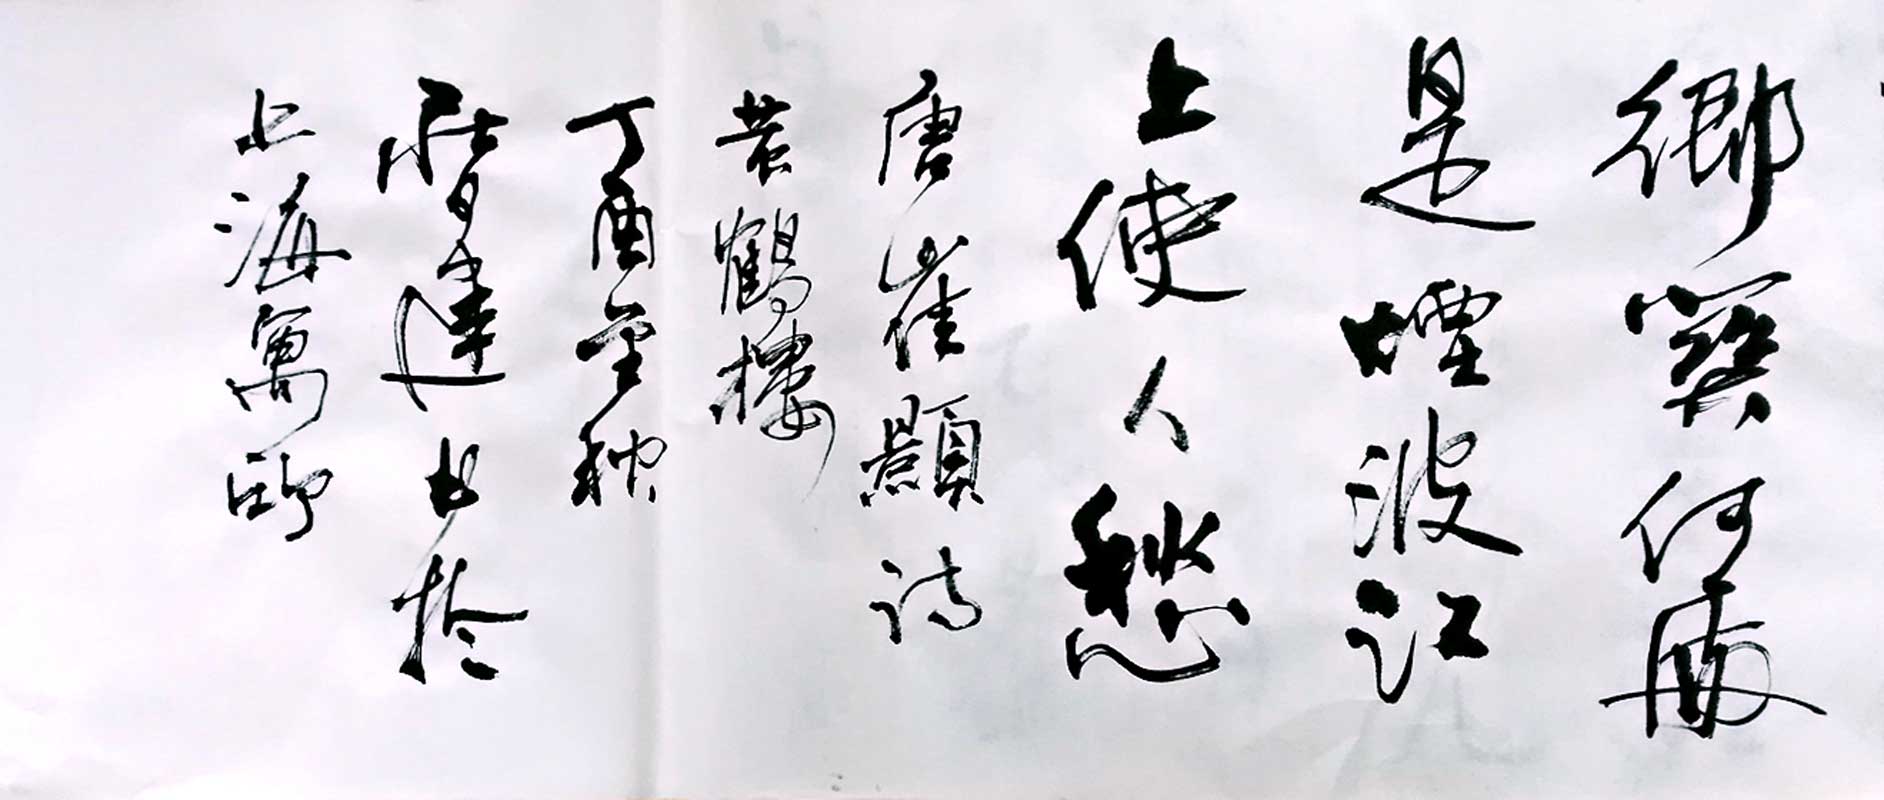 鄉關何處
是煙波江
上使人愁
唐崔顥詩
黃鶴樓
丁酉金秋
書於
上海寓所